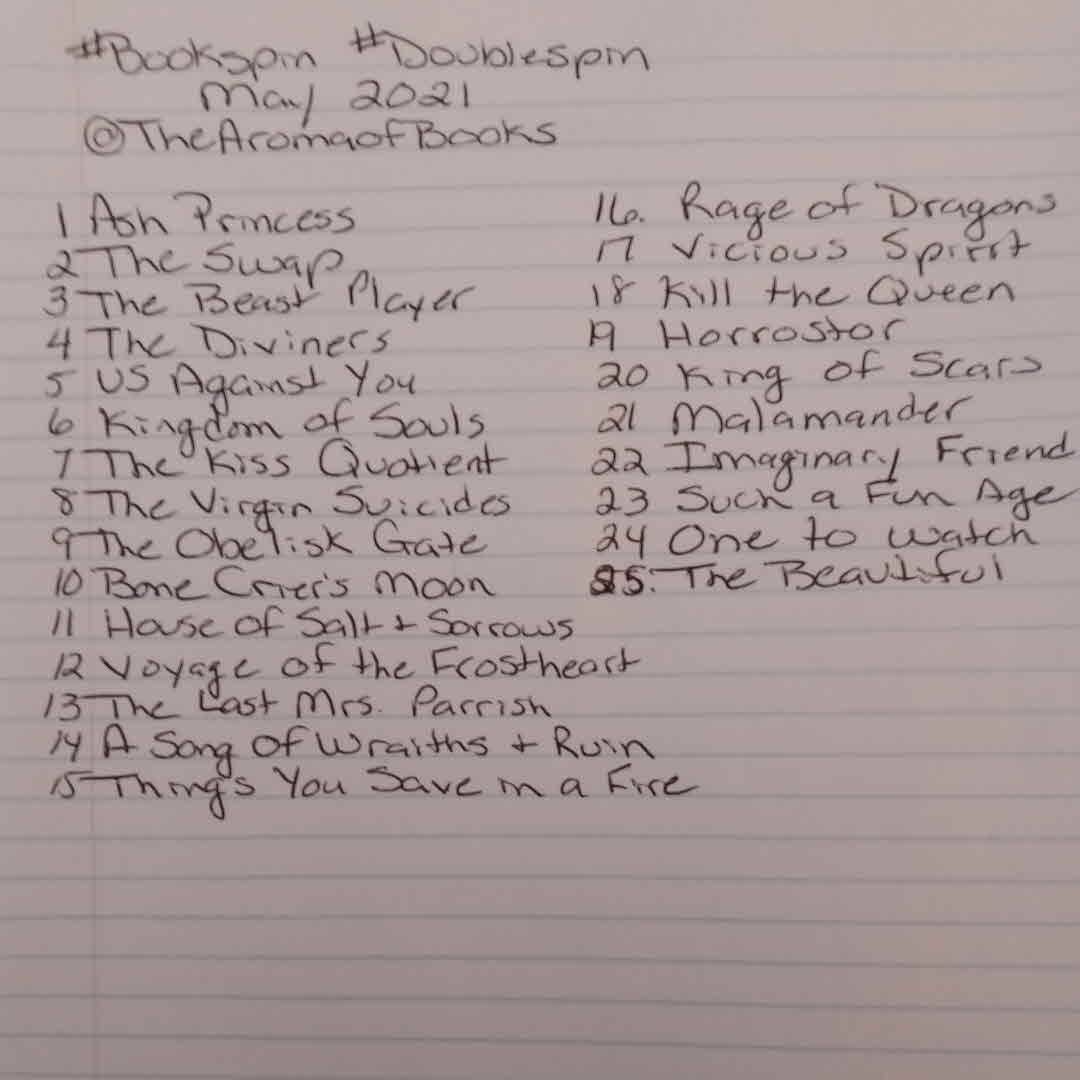 #Bookspin #Doublespin
May 2021
@TheAromaofBooks
1 Ash Princess
2 The Swap
3 The Beast Player
4 The Diviners
5 US Against You
6 Kingdom of Souls
7 The Kiss Quotient
8 The Virgin Suicides
9 The Obelisk Gate
10 Bone Crier's Moon
11 House of Salt + Sorrows
12 Voyage of the Frostheart
13 The Last Mrs. Parrish
14 A Song Of Wraiths + Ruin
15 Things You Save in a Fire
16. Rage of Dragons
17 Vicious Spirit
18 Kill the Queen
19 Horrostor
20 King of Scars
21 Malamander
22 Imaginary Friend
23 Such a Fun Age
24 One to Watch
25. The Beautiful